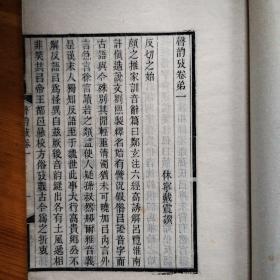 聲韵攷卷弟一
休寧戴震譔
反切之始
顏之推家訓音辭篇曰鄭玄注六經高誘解呂覽淮南
許慎造說文劉熙製釋名始有譬況假借㠯證音字而
古語與今殊別其閒輕重清濁猶未可曉加㠯內言外
言急言徐言讀若之類益使人疑孫叔然剏爾雅音義
是漢末人獨知反語至于魏世此事大行高貴鄉公不
解反語㠯為怪異自茲厥後音韵鋒出各有土風遞相
非笑共㠯帝王都邑參校方俗攷覈古今為之折衷
聲韵攷卷一